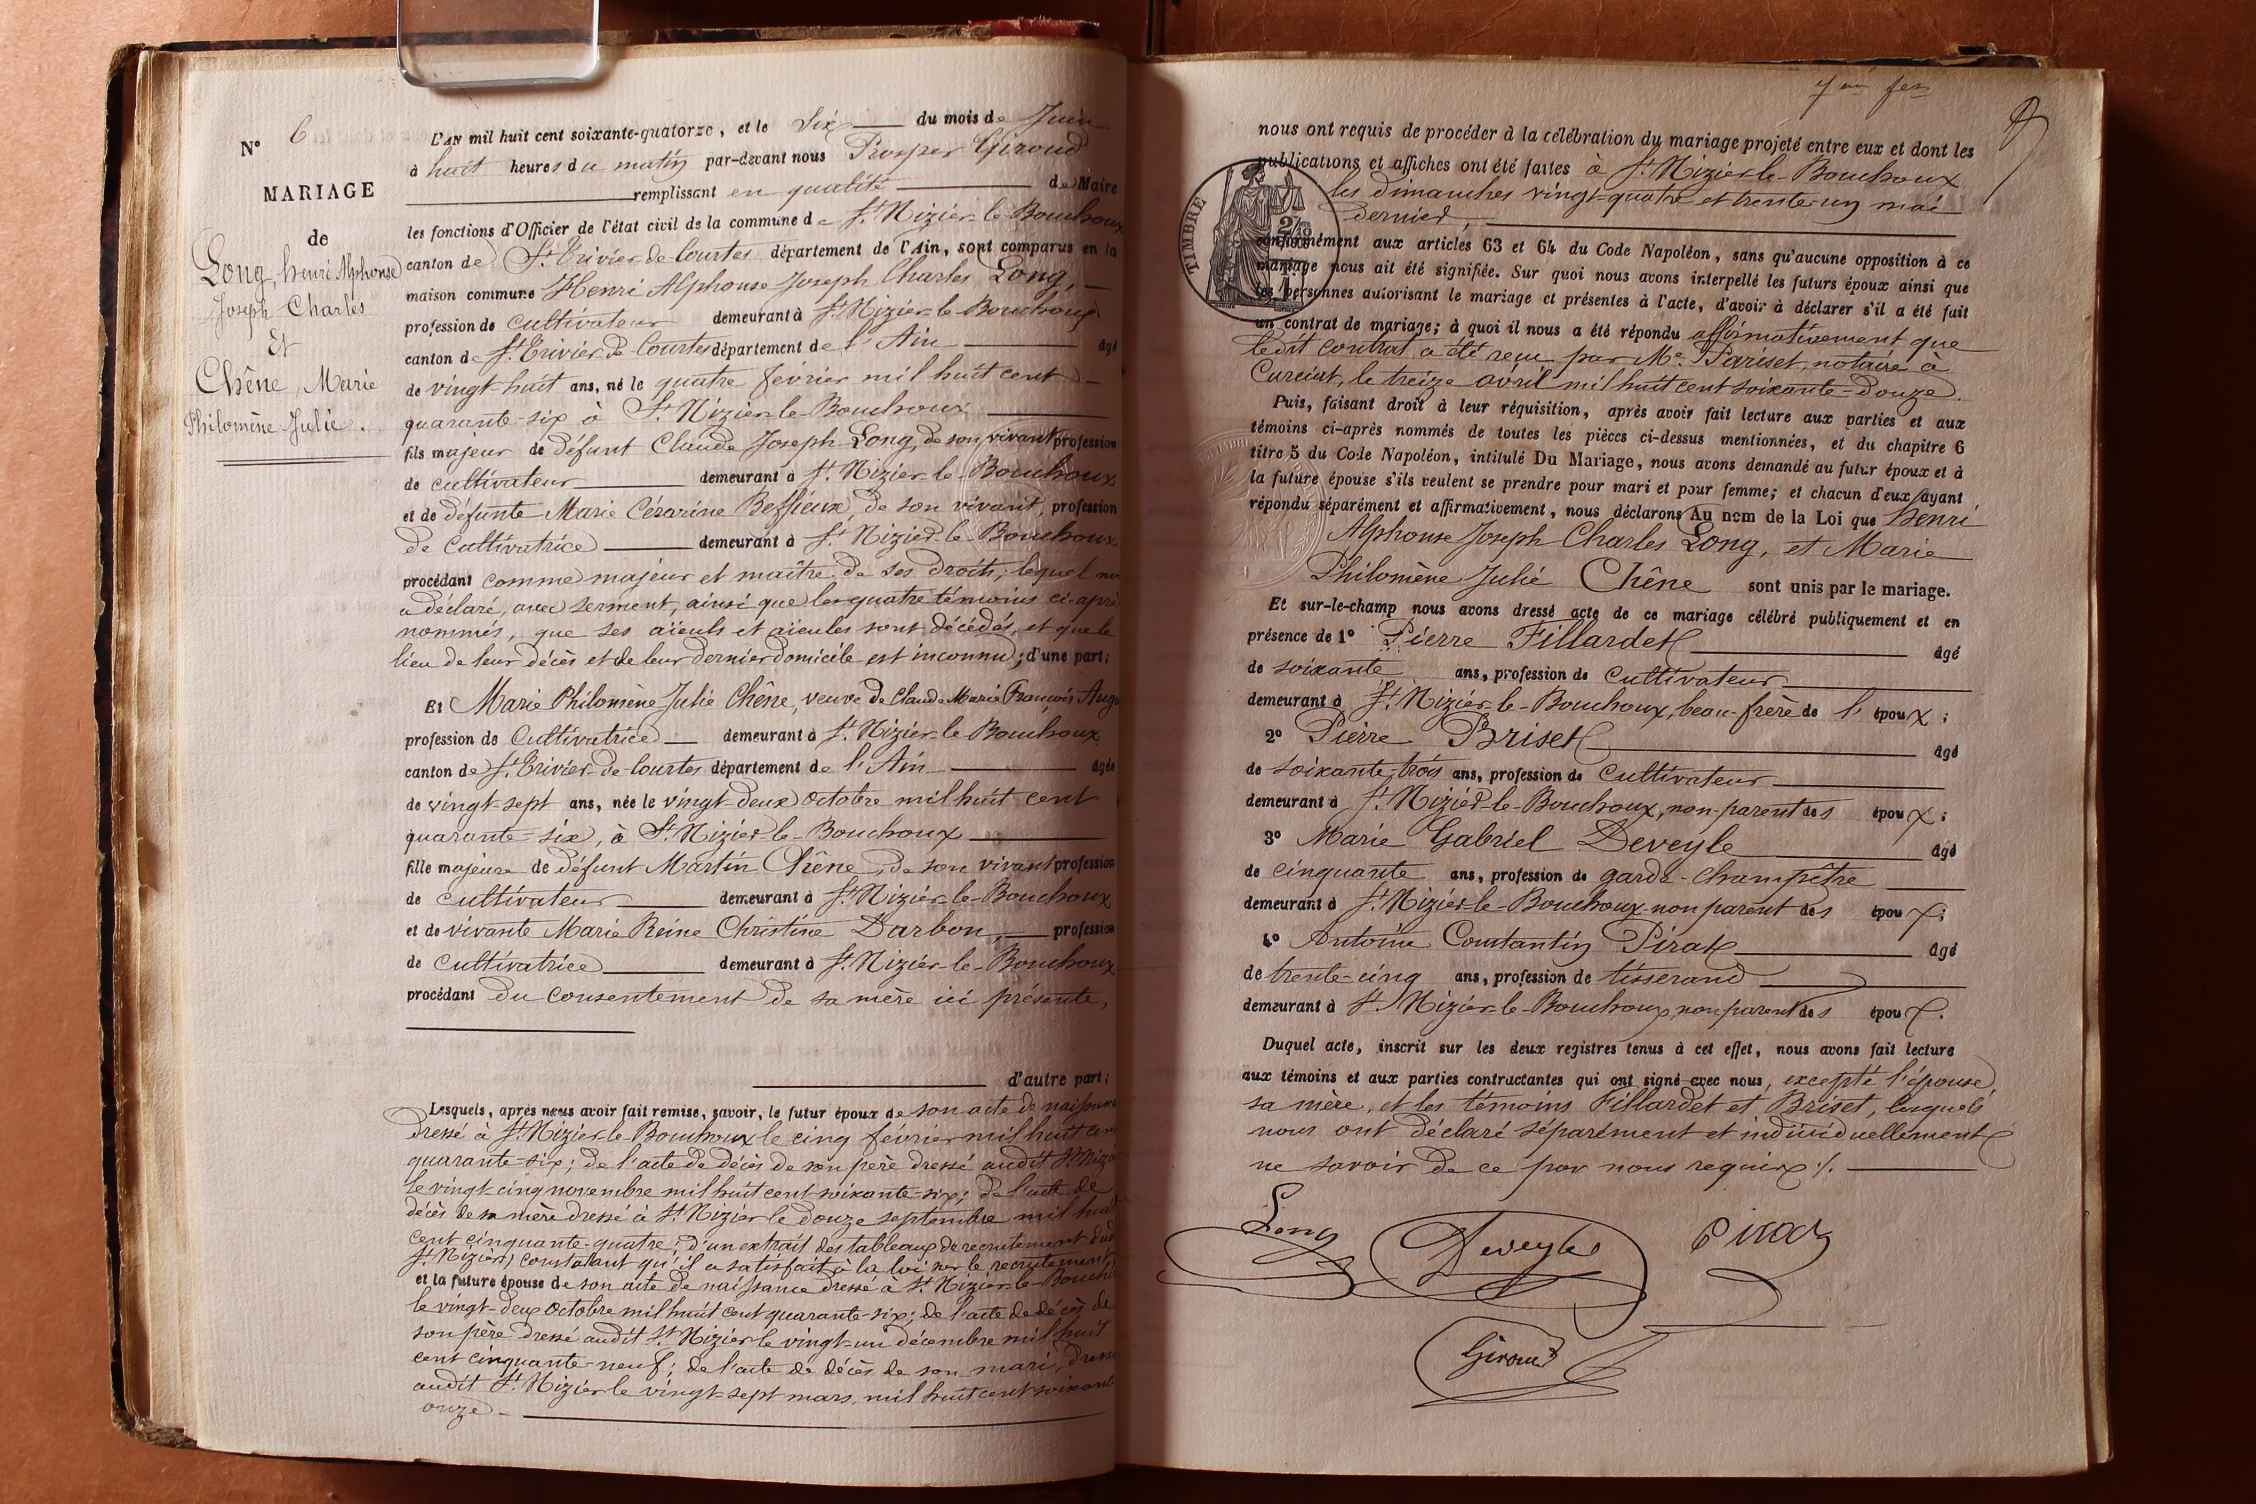 N° 6
MARIAGE
de
Long, henri Alphonse
Joseph Charles
Et
Chêne, Marie
Philomène Julie.
L'AN mil huit cent soixante-quatorze, et le Six du mois de Juin
à huit heures du matin par-devant nous Prosper Giroud
remplissant en qualité de Maire
les fonctions d'Officier de l'état civil de la commune de St. Nizier-le-Bouchoux
canton de St. Trivier-de-Courtes, département de l'Ain, sont comparus en la
maison commune Henri Alphonse Joseph Charles Long,
profession de cultivateur demeurant à St. Nizier-le-Bouchoux
canton de St. Trivier-de-Courtes département de l'Ain âgé
de vingt-huit ans, né le quatre février mil huit cent
quarante-six à St. Nizier-le-Bouchoux
fils majeur de défunt Claude Joseph Long, de son vivant profession
de cultivateur demeurant à St. Nizier-le-Bouchoux
et de défunte Marie Cézarine de son vivant, profession
de Cultivatrice demeurant à St. Nizier-le-Bouchoux
procédant comme majeur et maître de ses droits, lequel
a déclaré, avec serment, ainsi que les quatre témoins ci-après
nommés, que ses aïeuls et aïeules sont décédés, et que le
lieu de leur décès et de leur dernier domicile est inconnu; d'une part;
Et Marie Philomène Julie Chêne, veuve de Claude Marie François
profession de Cultivatrice demeurant à St. Nizier-le-Bouchoux
canton de St. Trivier-de-Courtes département de l'Ain âgée
de vingt-sept ans, née le vingt-deux Octobre mil huit cent
quarante-six, à St. Nizier-le-Bouchoux
fille majeure de défunt Martin Chêne, de son vivant profession
de cultivateur demeurant à St. Nizier-le-Bouchoux
et de vivante Marie Reine Christine Darbon, profession
de Cultivatrice demeurant à St. Nizier-le-Bouchoux
procédant du consentement de sa mère ici présente,
d'autre part;
Lesquels, après nous avoir fait remise, savoir, le futur époux de son acte de naissance
dressé à St. Nizier-le-Bouchoux le cinq février mil huit cent
quarante-six; de l'acte de décès de son père dressé audit St. Nizier
le vingt-cinq novembre mil huit cent soixante-six; de l'acte de
décès de sa mère dressé à St. Nizier le douze septembre mil huit
cent cinquante-quatre; d'un extrait des tableaux de recrutement dudit
St. Nizier, constatant qu'il a satisfait à la loi sur le recrutement,
et la future épouse de son acte de naissance dressé à St. Nizier-le-Bouchoux
le vingt-deux Octobre mil huit cent quarante-six; de l'acte de décès de
son père dressé audit St. Nizier le vingt-un décembre mil huit
cent cinquante-neuf; de l'acte de décès de son mari, dressé
audit St. Nizier le vingt-sept mars mil huit cent soixante
onze
nous ont requis de procéder à la célébration du mariage projeté entre eux et dont les
publications et affiches ont été faites à St. Nizier-le-Bouchoux
les dimanches vingt-quatre et trente-un mai
dernier,
TIMBRE
conformément aux articles 63 et 64 du Code Napoléon, sans qu'aucune opposition à ce
mariage nous ait été signifiée. Sur quoi nous avons interpellé les futurs époux ainsi que
les personnes autorisant le mariage et présentes à l'acte, d'avoir à déclarer s'il a été fait
un contrat de mariage; à quoi il nous a été répondu affirmativement que
ledit contrat a été reçu par Me. Pariset, notaire à
Curciat, le treize avril mil huit cent soixante-douze.
Puis, faisant droit à leur réquisition, après avoir fait lecture aux parties et aux
témoins ci-après nommés de toutes les pièces ci-dessus mentionnées, et du chapitre 6
titre 5 du Code Napoléon, intitulé Du Mariage, nous avons demandé au futur époux et à
la future épouse s'ils veulent se prendre pour mari et pour femme; et chacun d'eux ayant
répondu séparément et affirmativement, nous déclarons Au nom de la Loi que henri
Alphonse Joseph Charles Long, et Marie
Philomène Julie Chêne sont unis par le mariage.
Et sur-le-champ nous avons dressé acte de ce mariage célébré publiquement et en
présence de 1° Pierre Fillardet âgé
de soixante ans, profession de Cultivateur
demeurant à St. Nizier-le-Bouchoux, beau-frère de l'époux;
2° Pierre Briset âgé
de soixante-trois ans, profession de Cultivateur
demeurant à St. Nizier-le-Bouchoux, non-parent des époux;
3° Marie Gabriel Deveyle âgé
de cinquante ans, profession de garde-Champêtre
demeurant à St. Nizier-le-Bouchoux non parent des époux;
4° Antoine Constantin Pirat âgé
de trente-cinq ans, profession de tisserand
demeurant à St. Nizier-le-Bouchoux, non parent des époux.
Duquel acte, inscrit sur les deux registres tenus à cet effet, nous avons fait lecture
aux témoins et aux parties contractantes qui ont signé avec nous, excepté l'épouse,
sa mère, et les témoins Fillardet et Briset, lesquels
nous ont déclaré séparément et individuellement
ne savoir de ce par nous requis ./.
Long Deveyle Pirat
Giroud